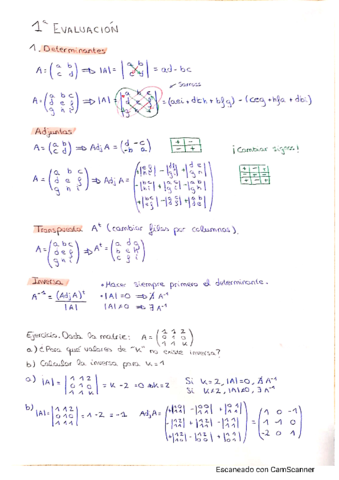 1ª EVALUACIÓN
1. Determinantes
A = (a b / c d) ⇒ |A| = |a b / c d| = ad - bc
Sarrus
A = (a b c / d e f / g h i) ⇒ |A| = |a b c / d e f / g h i| = (aei + dch + bfg) - (ceg + hfa + dbi)
Adjuntas
A = (a b / c d) ⇒ Adj A = (d -c / -b a)
+ -
- +
¡Cambiar signos!
A = (a b c / d e f / g h i) ⇒ Adj A =
+ - +
- + -
+ - +
Transpuesta Aᵗ (cambiar filas por columnas).
A = (a b c / d e f / g h i) ⇒ Aᵗ = (a d g / b e h / c f i)
Inversa
• Hacer siempre primero el determinante.
A⁻¹ = (Adj A)ᵗ / |A|
• |A| = 0 ⇒ ∄ A⁻¹
|A| ≠ 0 ⇒ ∃ A⁻¹
Ejercicio. Dada la matriz: A = (1 1 2 / 0 1 0 / 1 1 k)
a) ¿Para qué valores de "k" no existe inversa?
b) Calcular la inversa para k = 1
a) |A| = |1 1 2 / 0 1 0 / 1 1 k| = k - 2 = 0 ⇒ k = 2
Si k = 2, |A| = 0, ∄ A⁻¹
Si k ≠ 2, |A| ≠ 0, ∃ A⁻¹
b) |A| = |1 1 2 / 0 1 0 / 1 1 1| = 1 - 2 = -1
Adj A = = (1 0 -1 / 1 -1 0 / -2 0 1)
Escaneado con CamScanner